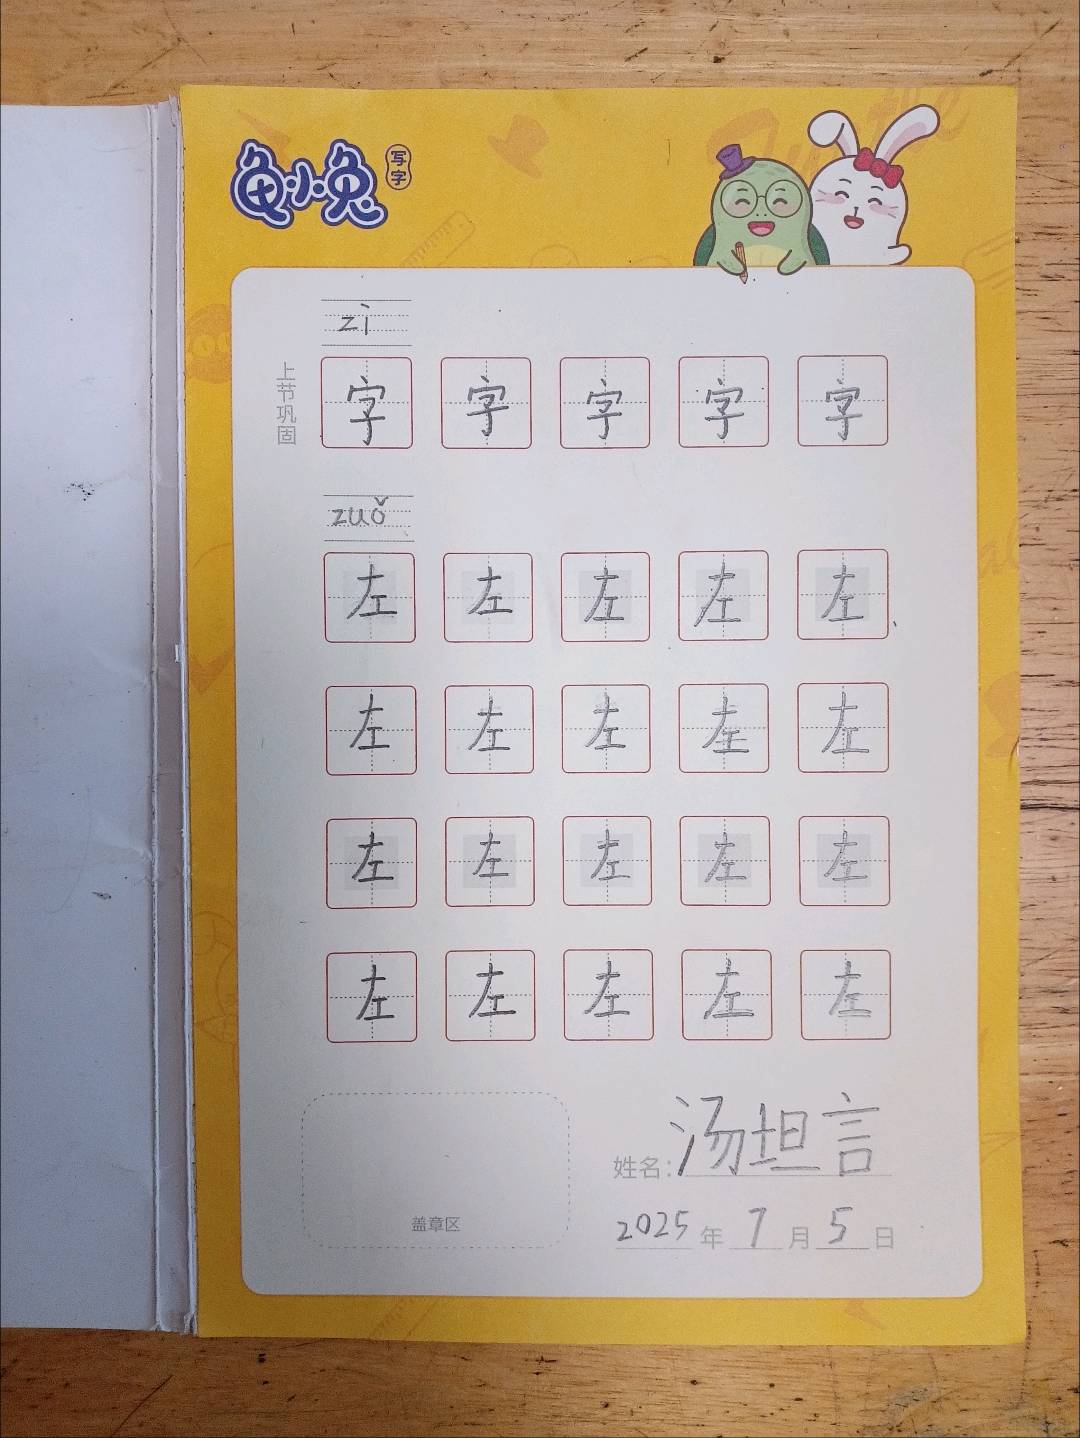 龟小兔 写字
zì
上节巩固
字 字 字 字 字
zuǒ
左 左 左 左 左
左 左 左 左 左
左 左 左 左 左
左 左 左 左 左
姓名：汤坦言
盖章区
2025 年 7 月 5 日